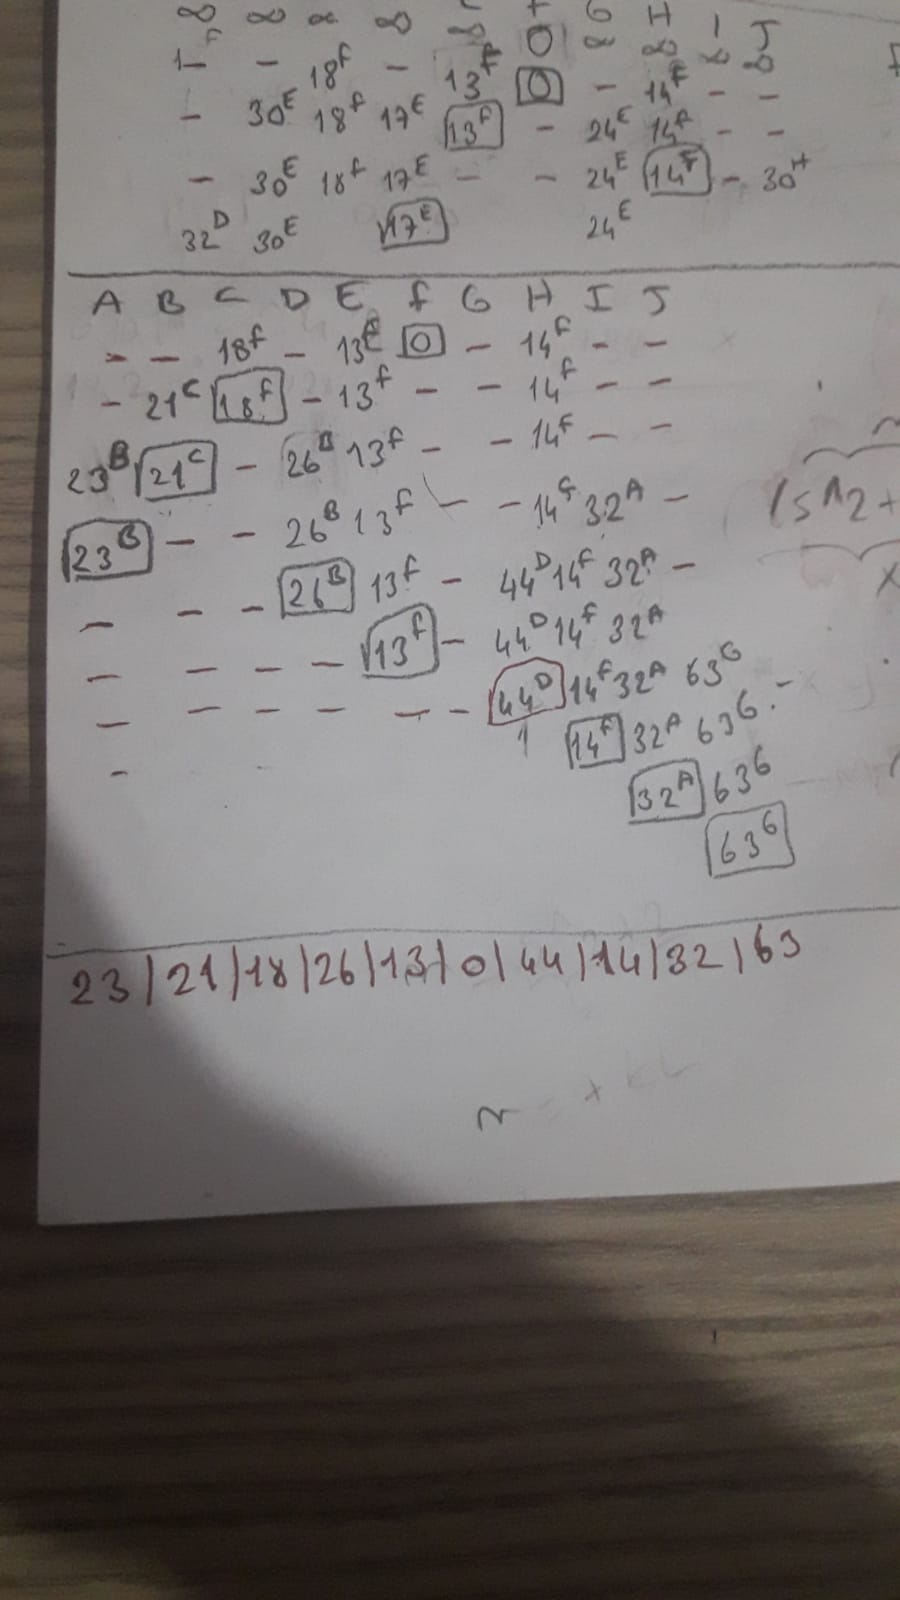 ∞ ∞ ∝ ∞ ∞ 0 G H I J
∝ ∞ ∞ ∞
1 F - 18F - 13F 0 - 14F - -
- 30E 18F 17E 13F - 24E 14F - -
- 30E 18F 17E - - 24E 14F - 30H
32D 30E 17E 24E
A B C D E F G H I J
- - 18F - 13E 0 - 14F - -
- 21C 18F - 13F - - 14F - -
23B 21C - 26B 13F - - 14F - -
23B - - 26B 13F - - 14G 32A -
- - - 26B 13F - 44D 14F 32A -
- - - - 13F - 44D 14F 32A
- - - - - - 44D 14F 32A 63G
- 14F 32A 63G -
32A 63G
63G
23 | 21 | 18 | 26 | 13 | 0 | 44 | 14 | 32 | 63